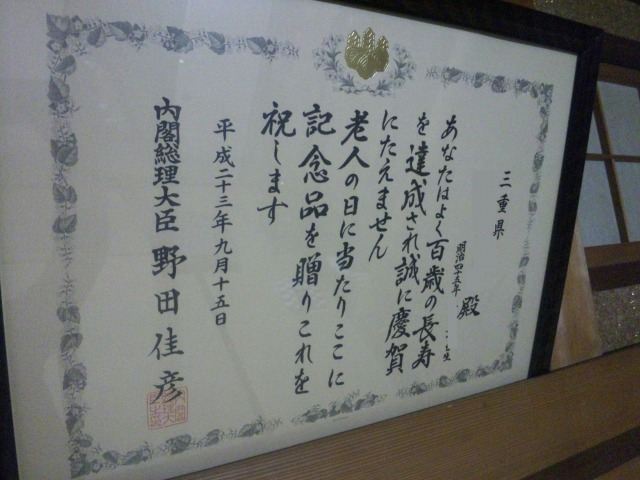 三重県
殿
明治四十五年
生
あなたはよく百歳の長寿
を達成され誠に慶賀
にたえません
老人の日に当たりここに
記念品を贈りこれを
祝します
平成二十三年九月十五日
内閣総理大臣 野田佳彦